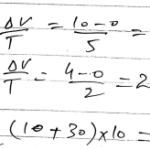 ΔV/T = 10-0/5 =
ΔV/T = 4-0/2 = 2
(10+30)×10 =